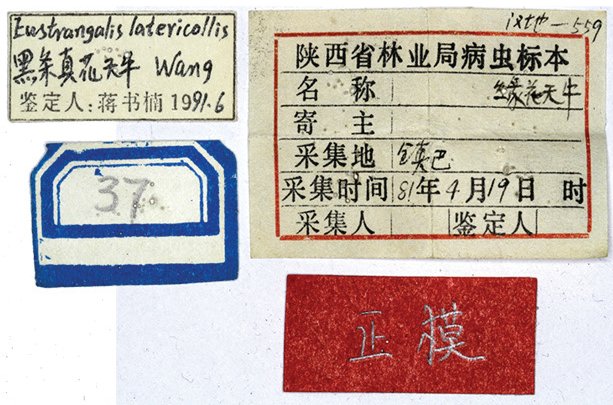 Eustrangalis latericollis
黑朱真花天牛 Wang
鉴定人:蒋书楠 1991.6
37
559
陕西省林业局病虫标本
名 称 缘花天牛
寄 主
采集地 镇巴
采集时间 81年4月19日 时
采集人 鉴定人
正模